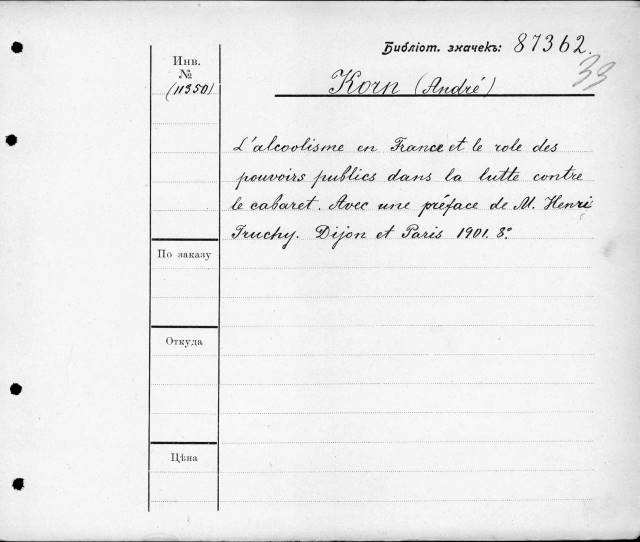 Библіот. значекъ: 87362.
33
Инв.
№
(11350)
Korn (André)
L'alcoolisme en France et le role des
pouvoirs publics dans la lutte contre
le cabaret. Avec une préface de M. Henri
Truchy. Dijon et Paris 1901. 8º
По заказу
Откуда
Цѣна